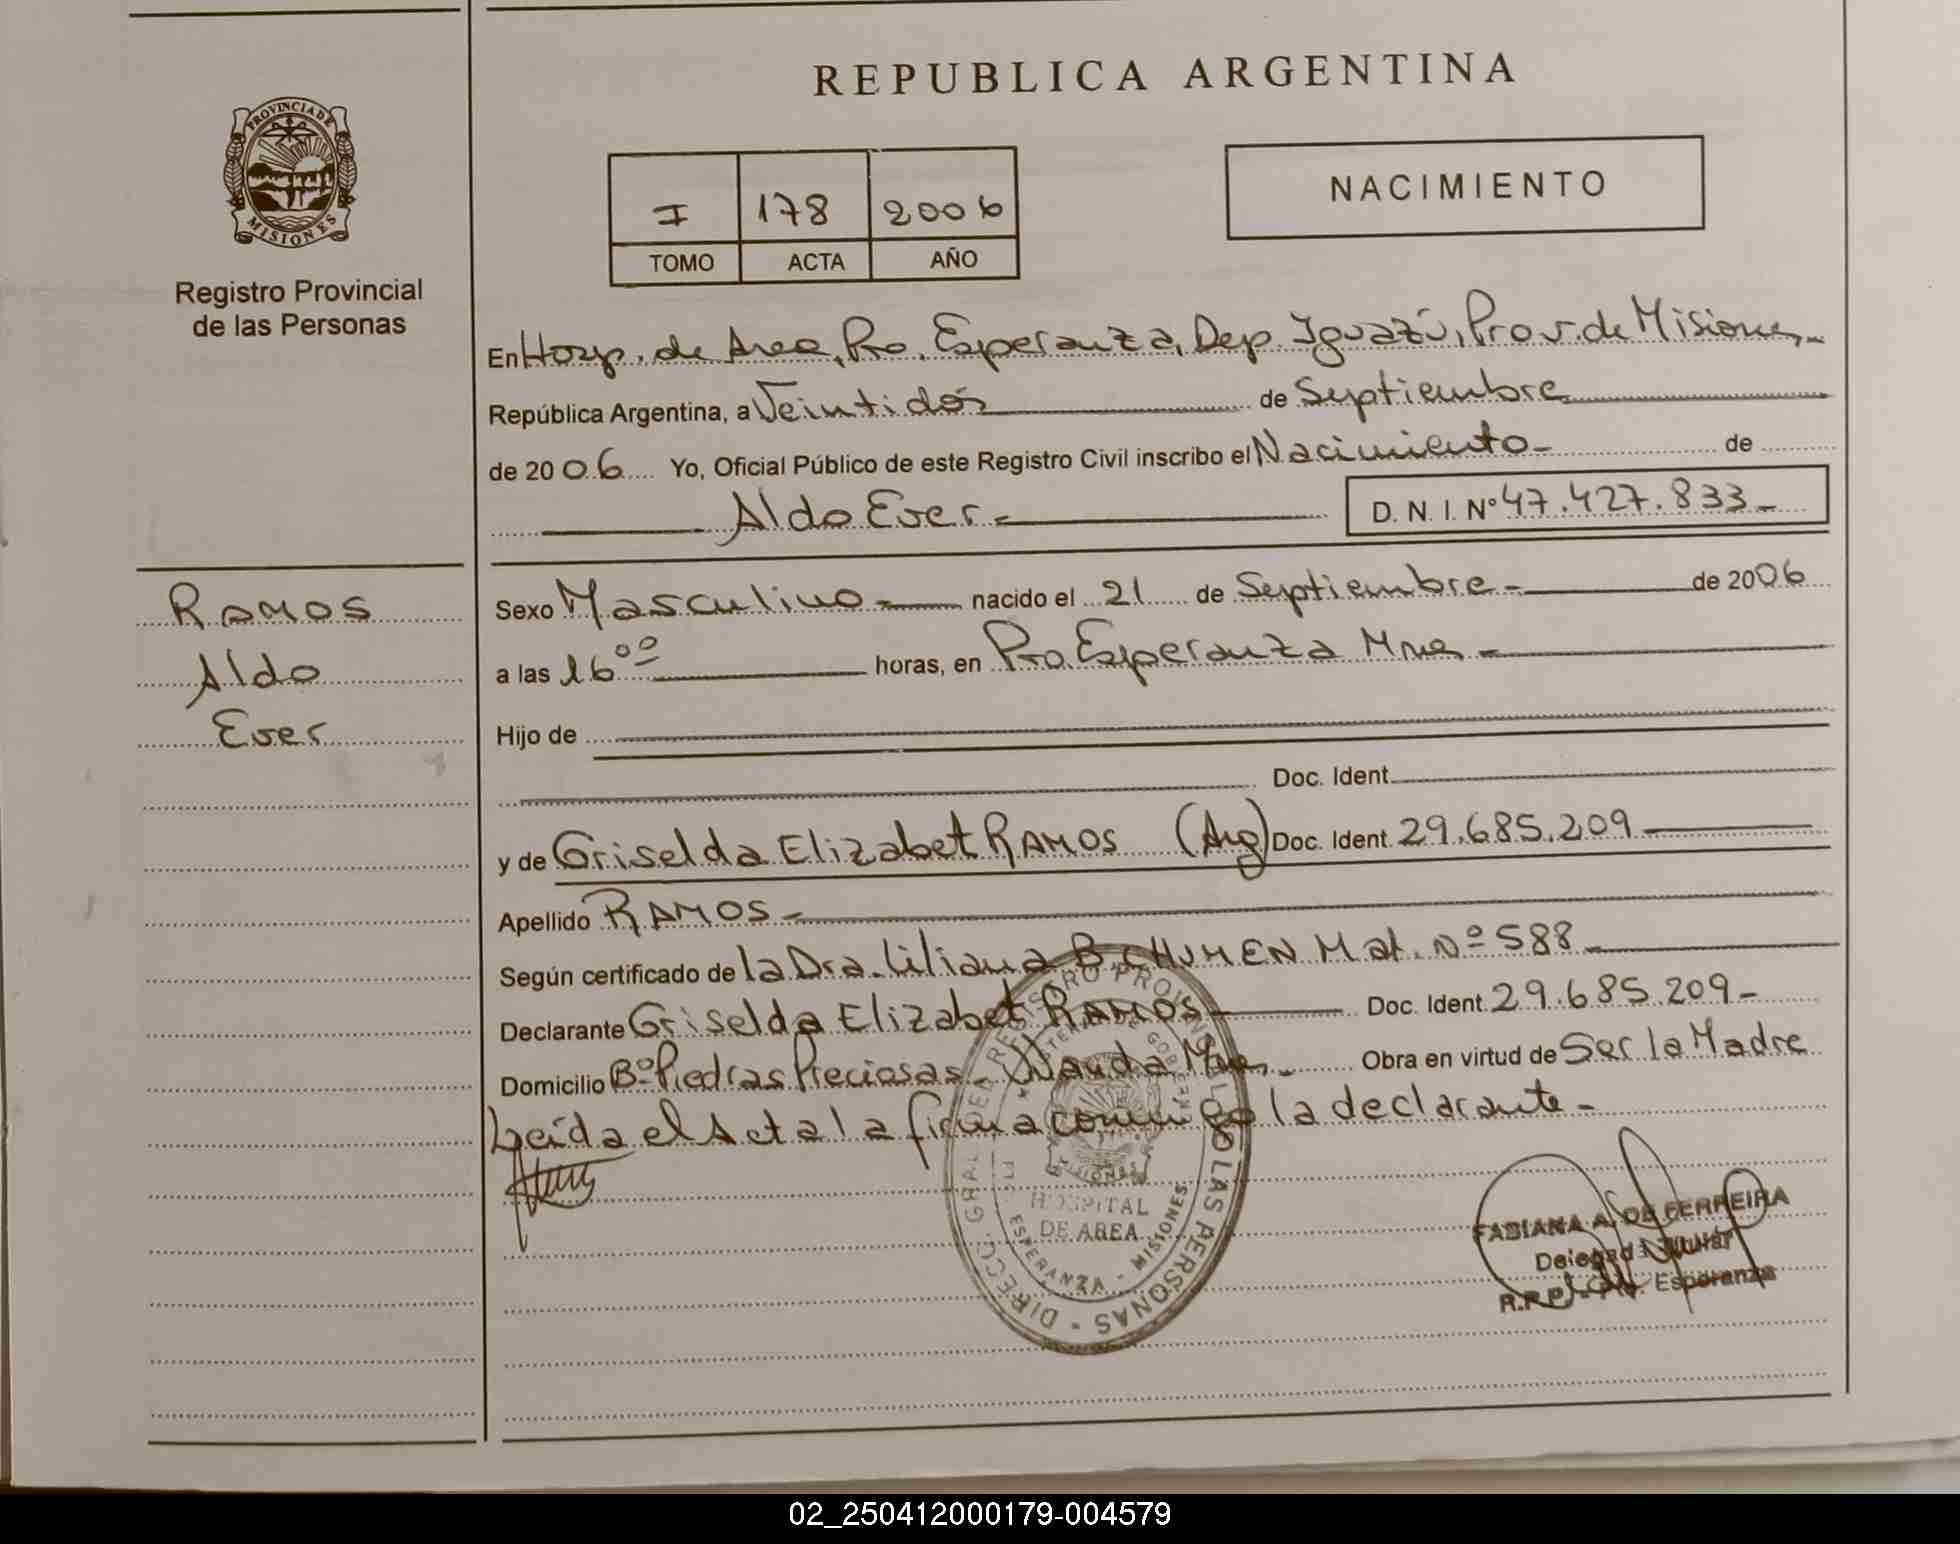 REPUBLICA ARGENTINA
PROVINCIA DE
MISIONES
Registro Provincial
de las Personas
I 178 2006
TOMO ACTA AÑO
NACIMIENTO
En Hosp. de Area, Pto. Esperanza, Dep. Iguazú, Prov. de Misiones
República Argentina, a Veintidós de Septiembre
de 2006 Yo, Oficial Público de este Registro Civil inscribo el Nacimiento de
Aldo Ever
D. N. I. Nº 47.427.833
Ramos
Aldo
Ever
Sexo Masculino nacido el 21 de Septiembre de 2006
a las 16 00 horas, en Pto. Esperanza Mnes
Hijo de
Doc. Ident.
y de Griselda Elizabet RAMOS (Arg) Doc. Ident. 29.685.209
Apellido RAMOS
Según certificado de la Dra. Liliana B CHUMEN Mat. Nº 588
Declarante Griselda Elizabet RAMOS Doc. Ident. 29.685.209
Domicilio Bº Piedras Preciosas - Wanda Mnes Obra en virtud de Ser la Madre
Leída el Acta la firma conmigo la declarante
DIRECC. GRAL. DEL REGISTRO PROVINCIAL DE LAS PERSONAS
HOSPITAL
DE AREA
ESPERANZA - MISIONES
FABIANA A. DE FERREIRA
Delegada Titular
R.P.P. - Pto. Esperanza
02_250412000179-004579